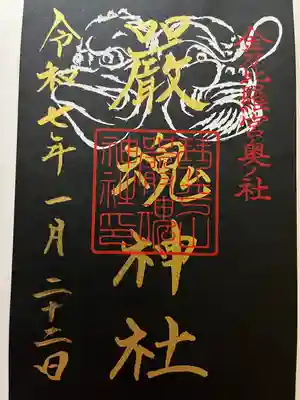 金刀比羅宮奥ノ社
嚴魂神社
令和七年一月二十二日